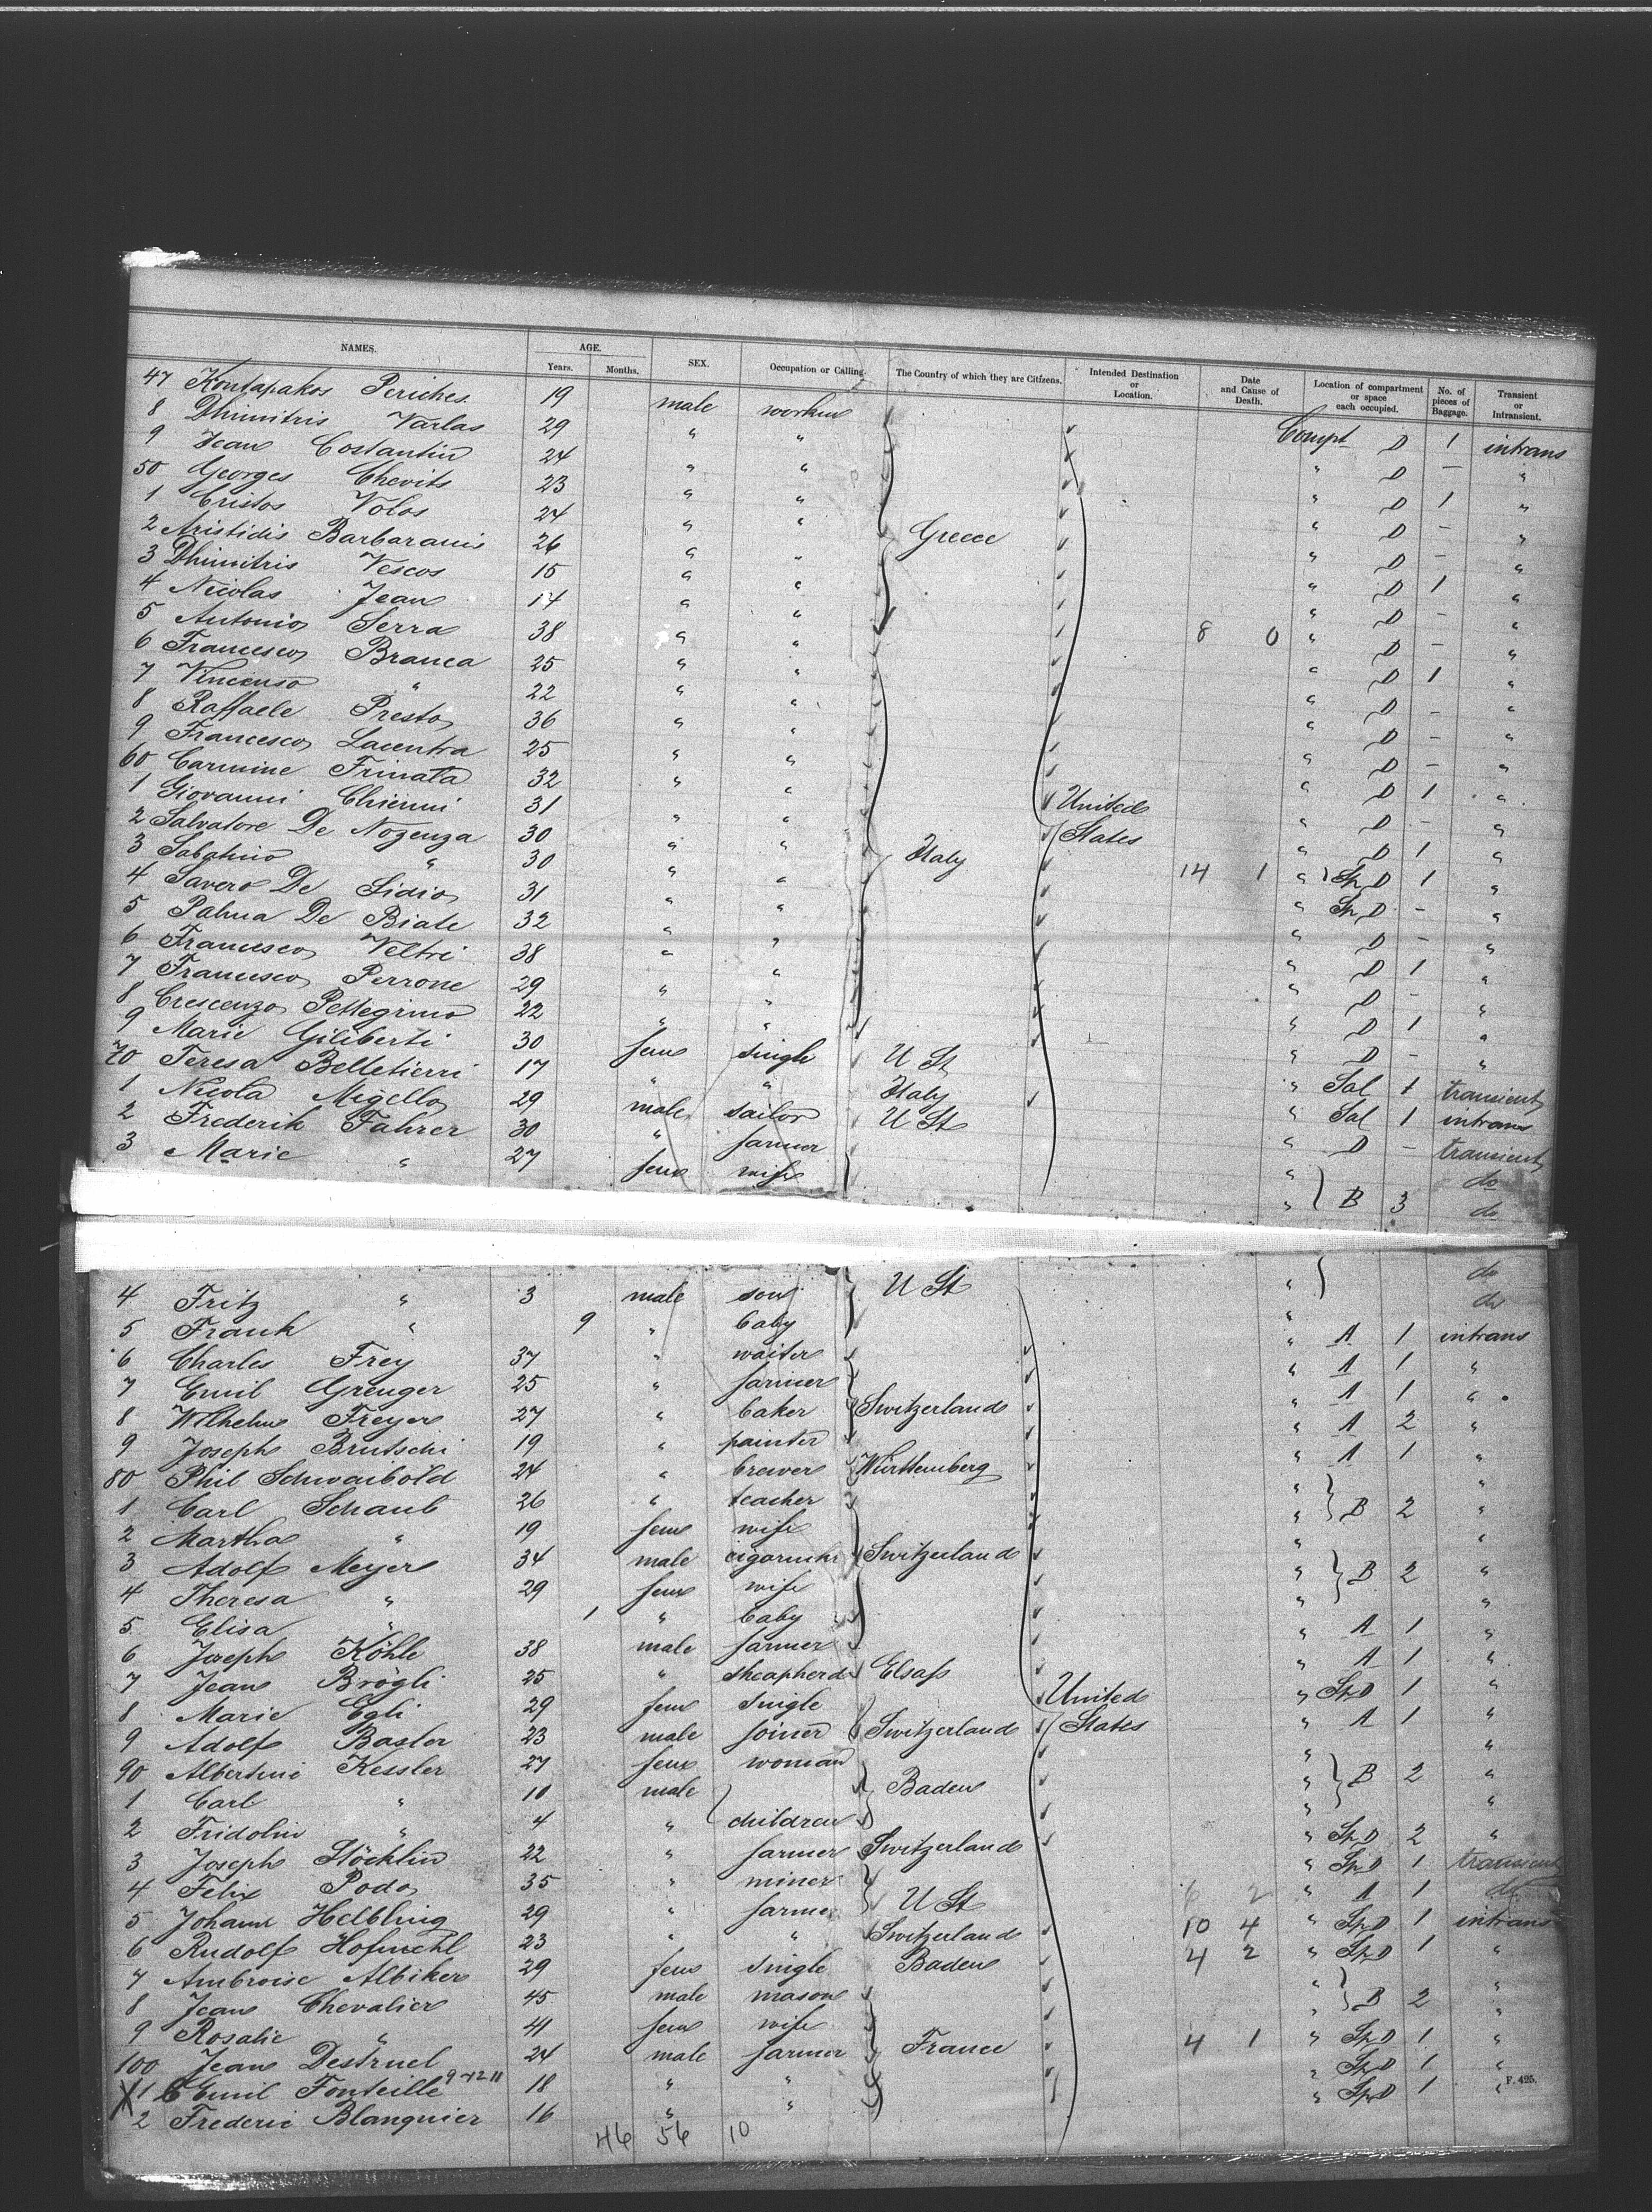 NAMES. AGE. SEX. Occupation or Calling. The Country of which they are Citizens. Intended Destination or Location. Date and Cause of Death. Location of compartment or space each occupied. No. of pieces of Baggage. Transient or Intransient.
Years. Months.
47 Kontapakos Periches 19 male worker Compt D 1 intrans
8 Dhimitris Varlas 29 " " " D – "
9 Jean Costantin 24 " " " D 1 "
50 Georges Chevits 23 " " " D – "
1 Cristos Volos 24 " " " D – "
2 Aristidis Barbaranis 26 " " Greece " D 1 "
3 Dhimitris Vescos 15 " " " D – "
4 Nicolas Jean 14 " " " D – "
5 Antonio Serra 38 " " 8 0 " D 1 "
6 Francesco Branca 25 " " " D – "
7 Vincenso " 22 " " " D – "
8 Raffaele Presto 36 " " " D – "
9 Francesco Lacentra 25 " " " D 1 "
60 Carmine Frinata 32 " " " D – "
1 Giovanni Chienni 31 " " United " D 1 "
2 Salvatore De Nozenza 30 " " States " Sp D 1 "
3 Sabatino " 30 " " Italy 14 1 " Sp D – "
4 Savero De Lidio 31 " " " D – "
5 Palma De Biale 32 " " " D 1 "
6 Francesco Veltri 38 " " " D – "
7 Francesco Perrone 29 " " " D 1 "
8 Crescenzo Pellegrino 22 " " " D – "
9 Marie Giliberti 30 fem single U St " Sal 1 transient
70 Teresa Belletierri 17 " " Italy " Sal 1 intrans
1 Nicola Migello 29 male sailor U St " D – transient
2 Frederik Fahrer 30 " farmer " do
3 Marie " 27 fem wife " B 3 do
4 Fritz " 3 male son U St " do
5 Frank " 9 " baby " do
6 Charles Frey 37 " waiter " A 1 intrans
7 Emil Grenger 25 " farmer " A 1 "
8 Wilhelm Freyer 27 " baker Switzerland " A 1 "
9 Joseph Brutschi 19 " painter " A 2 "
80 Phil Schwaibold 24 " brewer Württemberg " A 1 "
1 Carl Schaub 26 " teacher " "
2 Martha " 19 fem wife " B 2 "
3 Adolf Meyer 34 male cigarmkr Switzerland " "
4 Theresa " 29 fem wife " B 2 "
5 Elisa " 1 " baby " "
6 Joseph Köhle 38 male farmer " A 1 "
7 Jean Brögli 25 " sheapherd Elsass " A 1 "
8 Marie Egli 29 fem single United " Sp D 1 "
9 Adolf Basler 23 male joiner Switzerland States " A 1 "
90 Albertine Kessler 27 fem woman " "
1 Carl " 10 male Baden " B 2 "
2 Fridolin " 4 " children " "
3 Joseph Stöcklin 22 " farmer Switzerland " Sp D 2 "
4 Felix Podo 35 " miner " Sp D 1 transient
5 Johann Helbling 29 " farmer U St 6 2 " A 1 do
6 Rudolf Hofmehl 23 " " Switzerland 10 4 " Sp D 1 intrans
7 Ambroise Albiker 29 fem single Baden 4 2 " Sp D 1 "
8 Jean Chevalier 45 male mason " "
9 Rosalie " 41 fem wife " B 2 "
100 Jean Destruel 24 male farmer France 4 1 " Sp D 1 "
X 1 Emil Fonteille 9-12 11 18 " " " Sp D 1 "
2 Frederic Blanquier 16 " " " Sp D 1 "
F. 425.
46 56 10